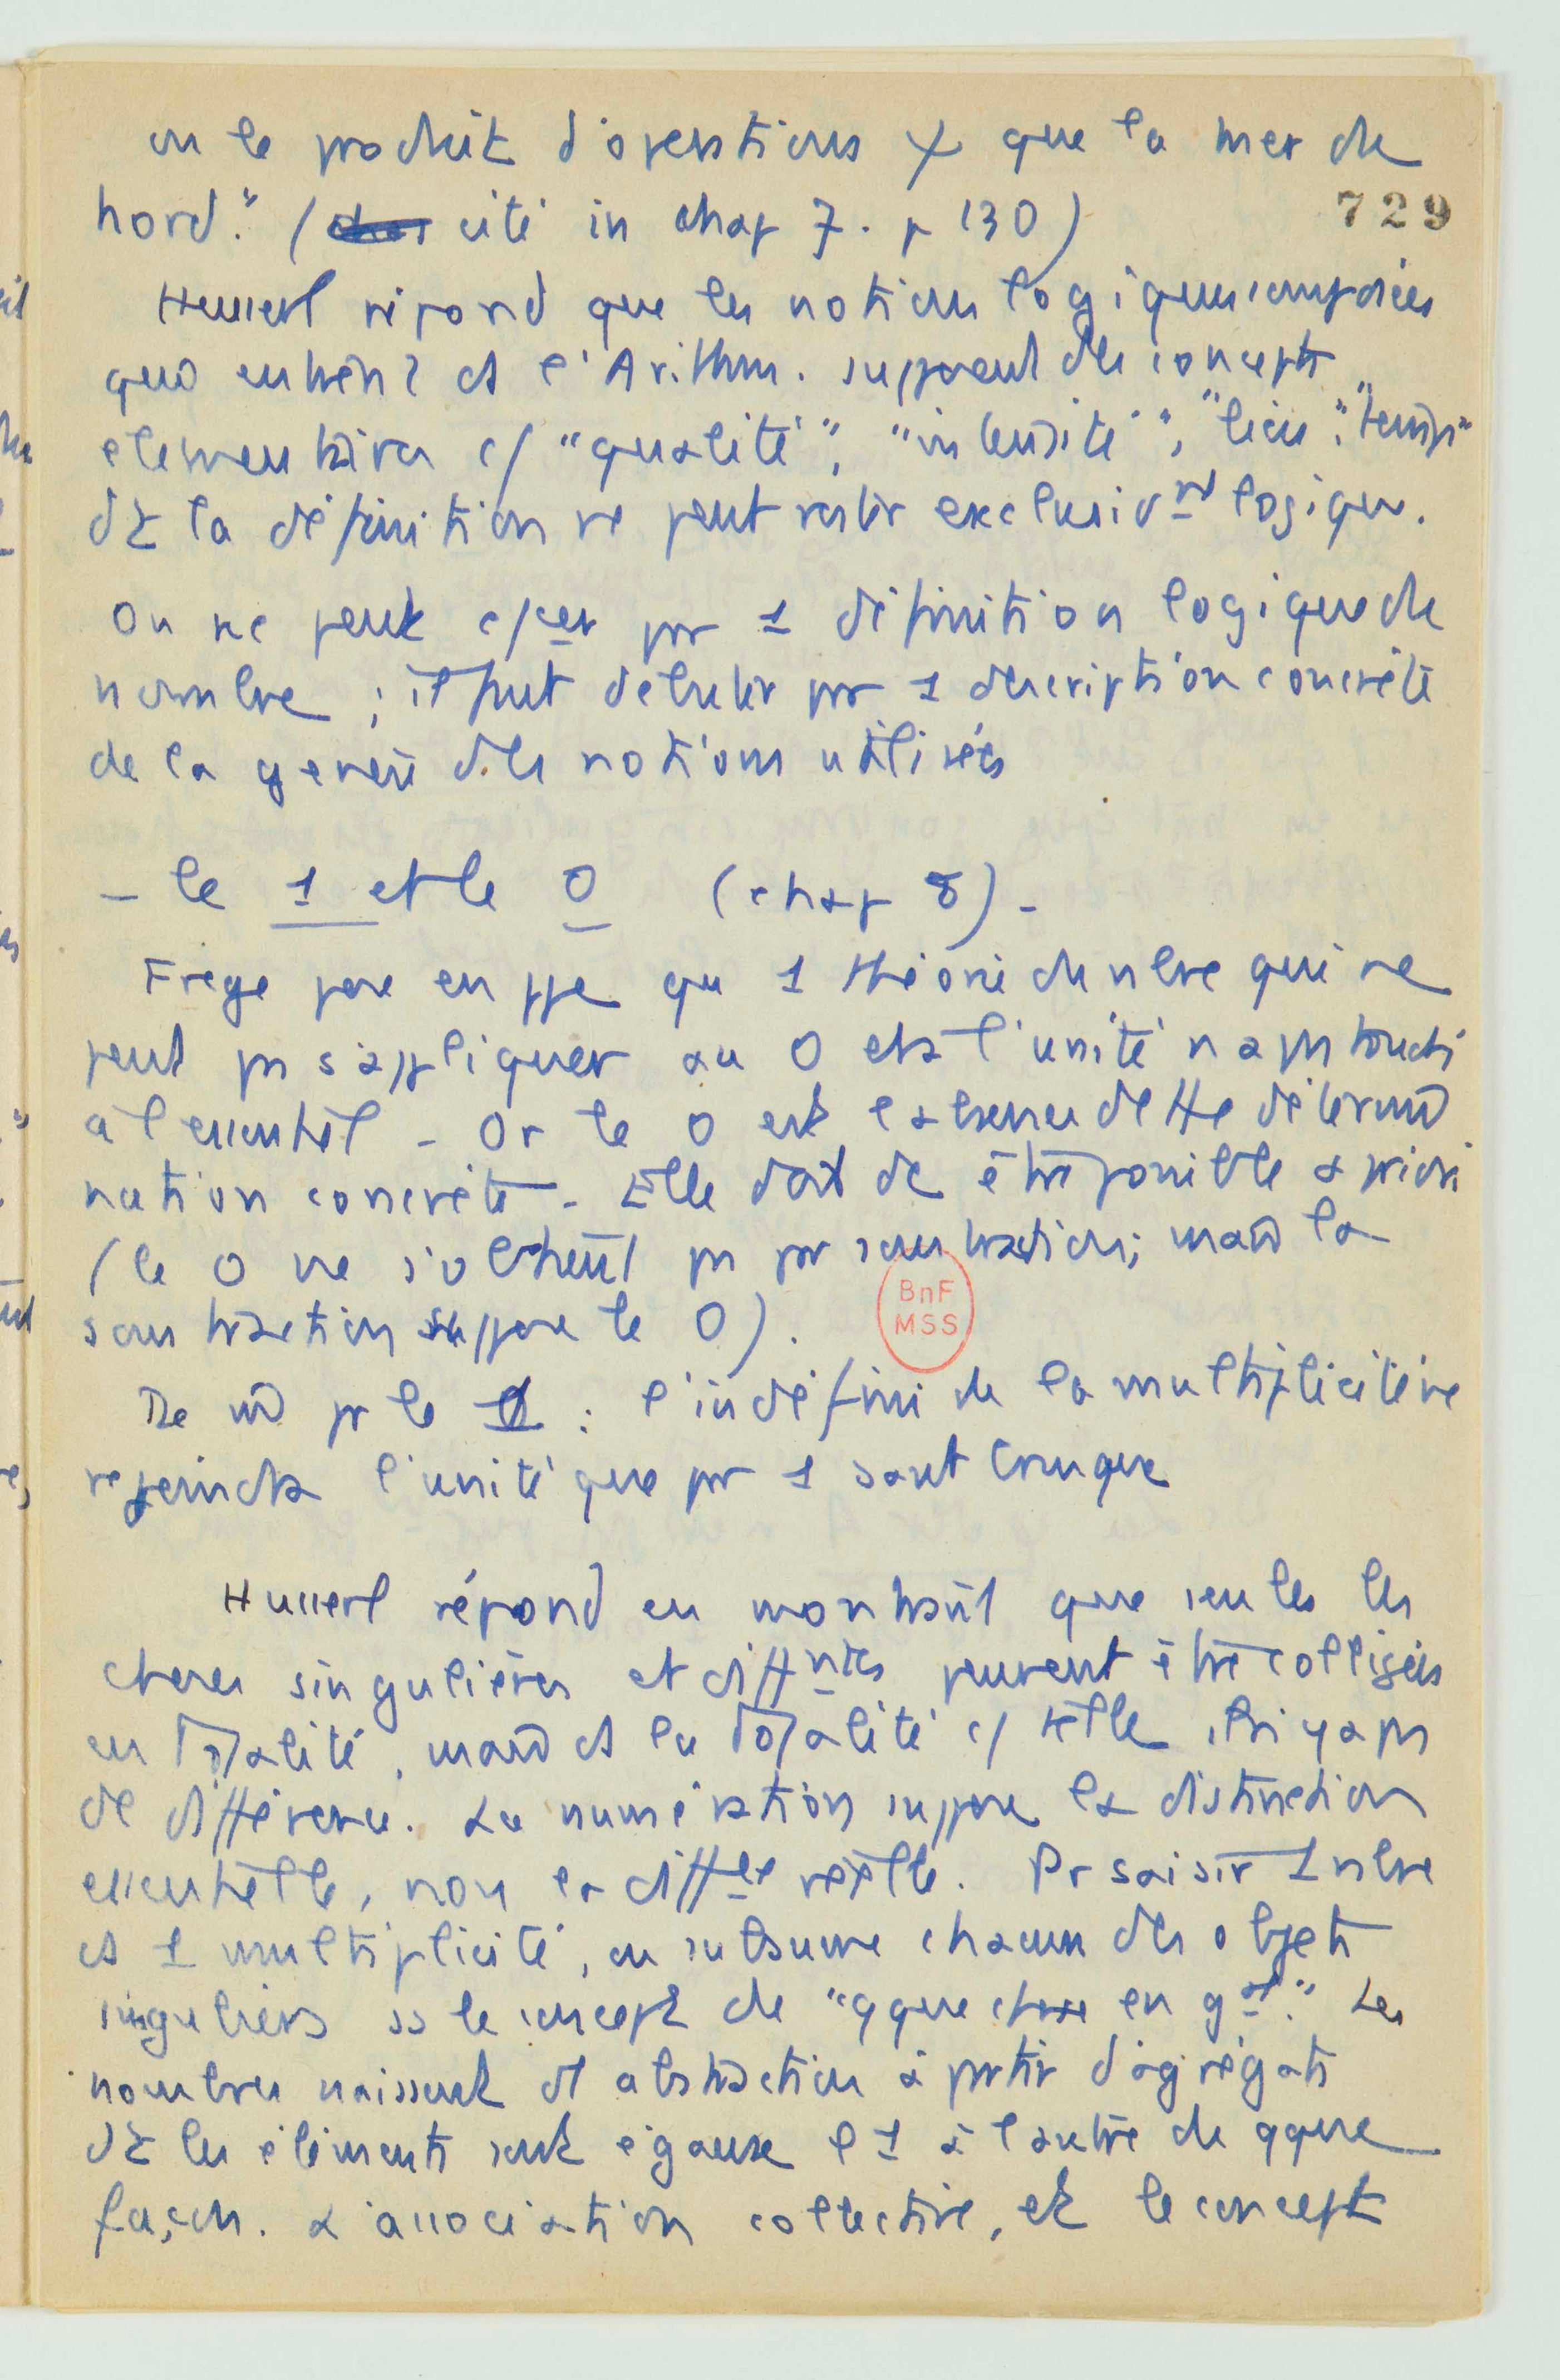 ou le produit d'operations psy que la mer du
nord." (cité in chap 7. p 130)
729
Husserl répond que les notions logiques composées
qui entrent ds l'Arithm. supposent des concepts
elementaires c/ "qualité", "intensité", "lieu", "temps"
dt la définition ne peut rester exclusivmt logique.
On ne peut c/cer par 1 définition logique du
nombre ; il faut débuter par 1 description concrète
de la genèse des notions utilisées
- le 1 et le 0 (chap 8) -
Frege pose en ppe qu 1 théorie du nbre qui ne
peut pas s'appliquer au 0 et à l'unité n'a pas touché
à l'essentiel - Or le 0 est l'absence de tte détermi
nation concrète - Elle doit dc être possible a priori
(le 0 ne s'obtient pas par soustraction; mais la
soustraction suppose le 0).
BnF
MSS
De m pr le 1 : l'indéfini de la multiplicité ne
rejoindra l'unité que par 1 saut brusque
Husserl répond en montrant que seules les
choses singulières et diffntes peuvent être colligées
en totalité, mais ds la totalité c/ telle, il n'y a pas
de différence. La numération suppose la distinction
essentielle, non la diffce réelle. Pr saisir 1 nbre
ds 1 multiplicité, on subsume chacun des objets
singuliers ss le concept de "qque chose en gal." Les
nombres naissent d'abstraction à partir d'agrégats
dt les éléments sont égaux l'1 à l'autre de qque
façon. L'association collective, et le concept